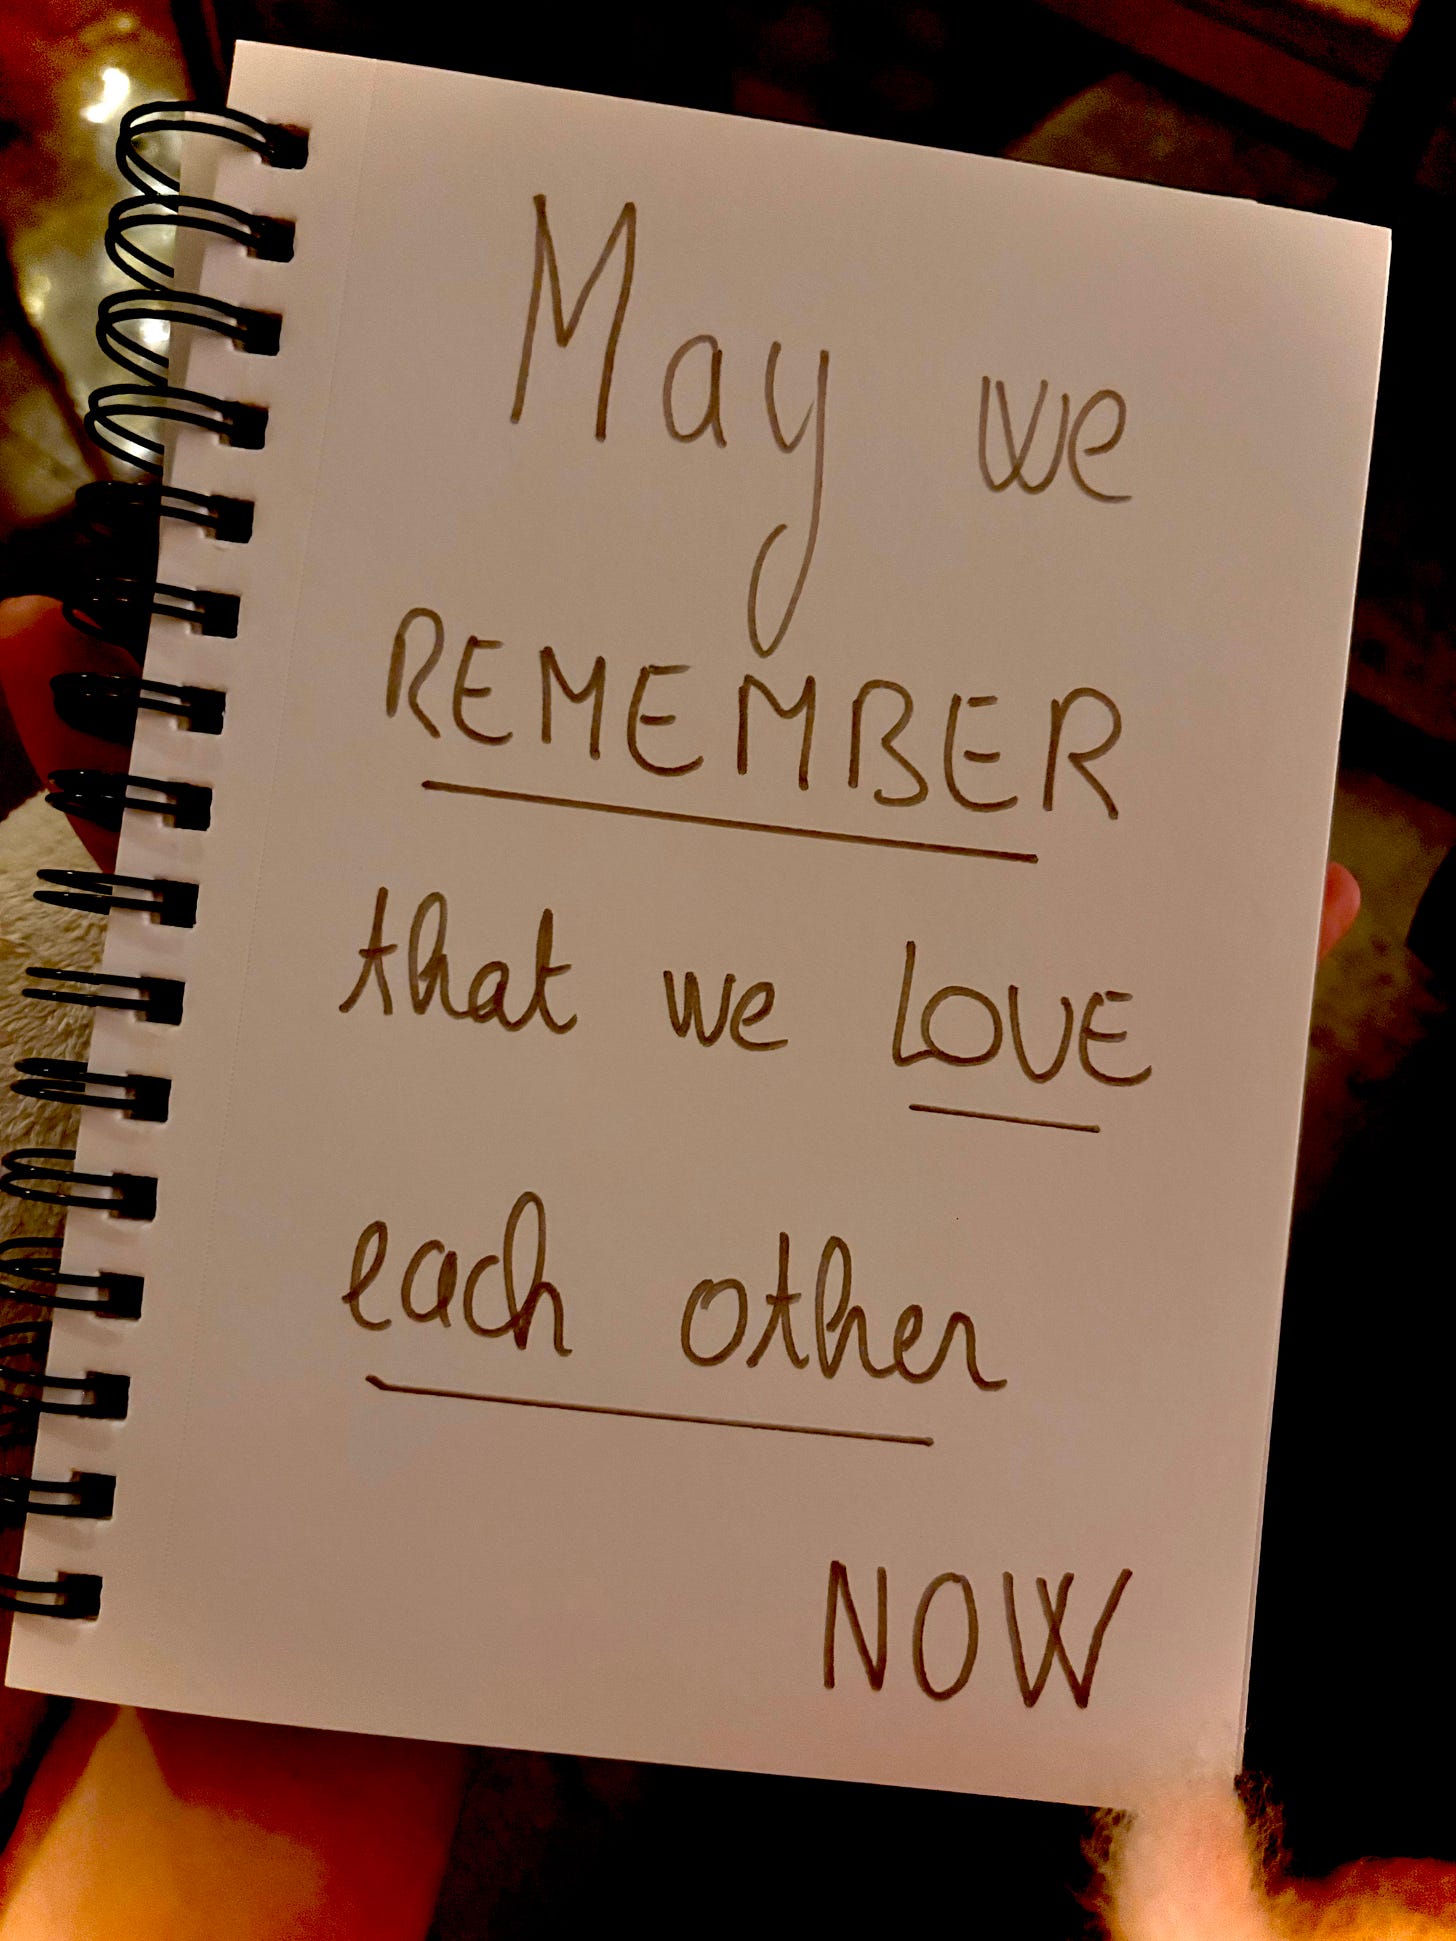 May we
REMEMBER
that we LOVE
each other
NOW